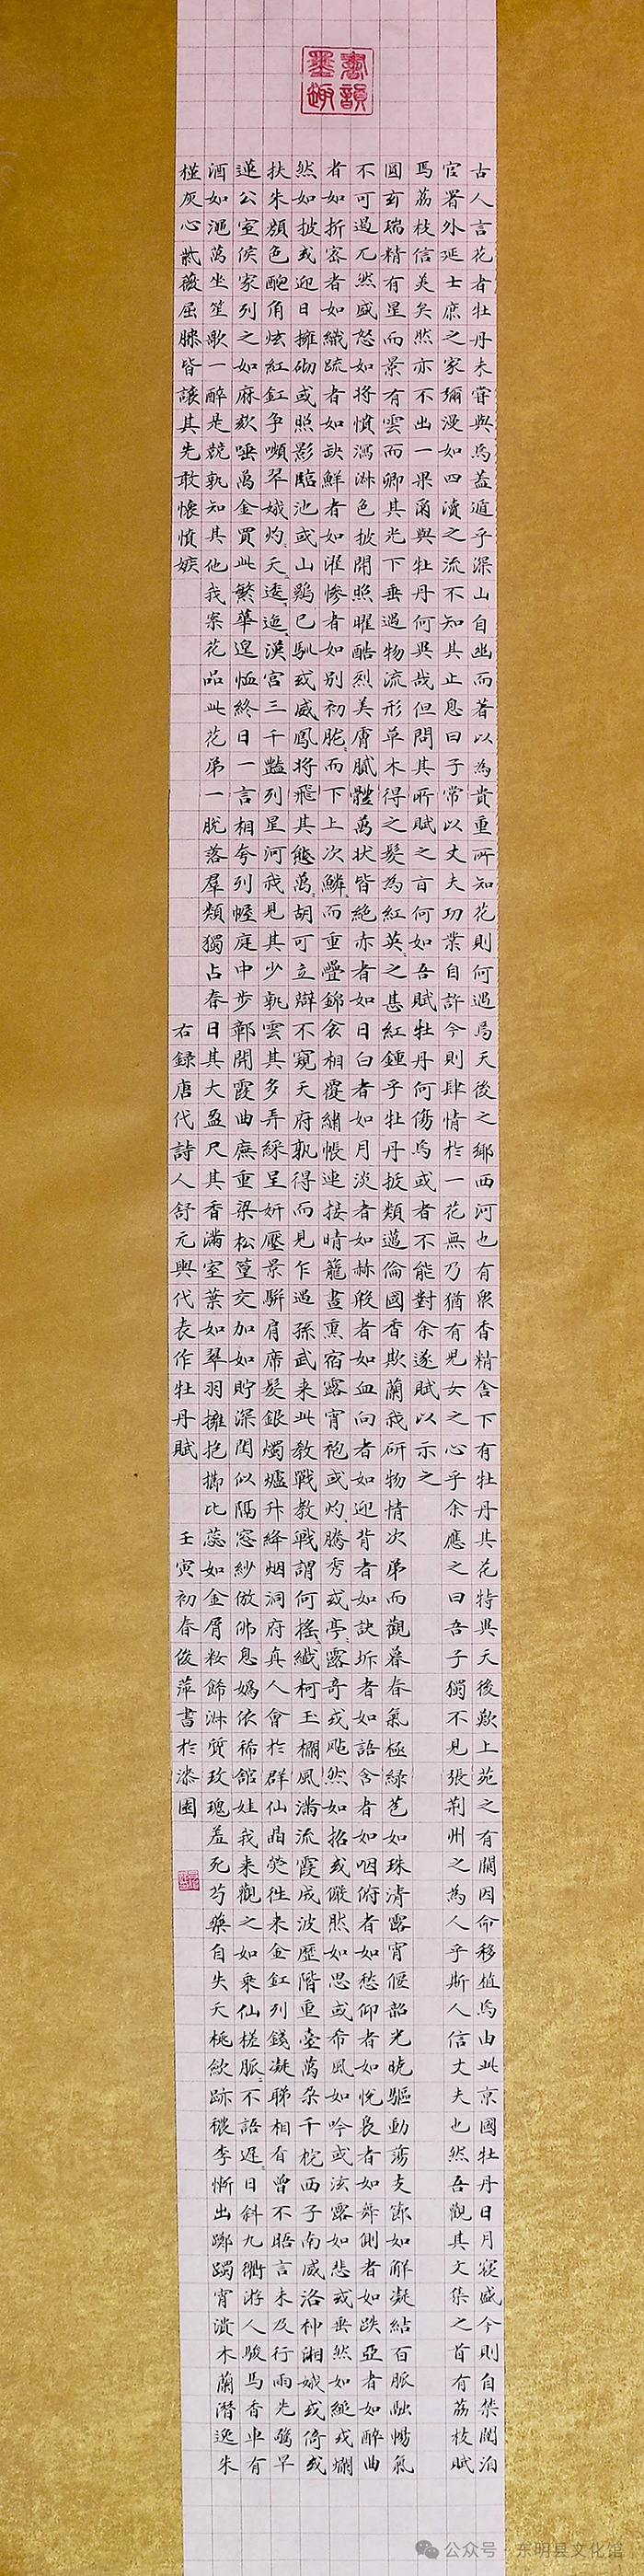 書韻墨趣
古人言花者牡丹未嘗與焉蓋遁乎深山自幽而著以為貴重所知花則何遇焉天後之鄉西河也有眾香精舍下有牡丹其花特異天後歎上苑之有闕因命移植焉由此京國牡丹日月寖盛今則自禁闥洎
官署外延士庶之家彌漫如四瀆之流不知其止息曰子常以丈夫功業自許今則肆情於一花無乃猶有兒女之心乎余應之曰吾子獨不見張荊州之為人乎斯人信丈夫也然吾觀其文集之首有荔枝賦
焉荔枝信美矣然亦不出一果爾與牡丹何異哉但問其所賦之旨何如吾賦牡丹何傷焉或者不能對余遂賦以示之
圓玄瑞精有星而景有雲而卿其光下垂遇物流形草木得之發為紅英之甚紅鍾乎牡丹拔類邁倫國香欺蘭我研物情次弟而觀暮春氣極綠苞如珠清露宵偃韶光曉驅動蕩支節如解凝結百脈融暢氣
不可遏兀然盛怒如將憤洩淋色披開照曜酷烈美膚膩體萬狀皆絕赤者如日白者如月淡者如赫殷者如血向者如迎背者如訣坼者如語含者如咽俯者如愁仰者如悅裊者如舞側者如跌亞者如醉曲
者如折密者如織疏者如缺鮮者如濯慘者如別初朧〻而下上次鱗〻而重疊錦衾相覆繡帳連接晴籠晝熏宿露宵裛或灼〻騰秀或亭〻露奇或颭然如招或儼然如思或希風如吟或泫露如悲或垂然如縋或爛
然如披或迎日擁砌或照影臨池或山雞已馴或威鳳將飛其態萬〻胡可立辯不窺天府孰得而見乍遇孫武来此教戰教戰謂何搖〻纖柯玉欄風滿流霞成波歷階重臺萬朵千窠西子南威洛神湘娥或倚或
扶朱顏色酡角炫紅釭爭嚬翠娥灼〻夭〻逶〻迤〻漢宮三千豔列星河我見其少孰雲其多弄綵呈妍壓景駢肩席髮銀燭爐升絳烟洞府真人會於群仙晶熒往来金釭列錢凝睇相看曾不晤言未及行雨先驚旱
蓮公室侯家列之如麻欬唾萬金買此繁華遑恤終日一言相夸列幄庭中步鄣開霞曲廡重梁松篁交加如貯深閨似隔窓紗仿佛息媯依稀館娃我来觀之如乘仙槎脈〻不語遲〻日斜九衢游人駿馬香車有
酒如澠萬坐笙歌一醉是競孰知其他我案花品此花弟一脫落羣類獨占春日其大盈尺其香滿室葉如翠羽擁抱櫛比蕊如金屑妝飾淋質玫瑰羞死芍藥自失夭桃斂跡穠李慚出躑躅宵潰木蘭潛逸朱
槿灰心紫薇屈膝皆讓其先敢懷憤嫉
右錄唐代詩人舒元輿代表作牡丹賦 壬寅初春俊萍書於漆園
公众号·东明县文化馆